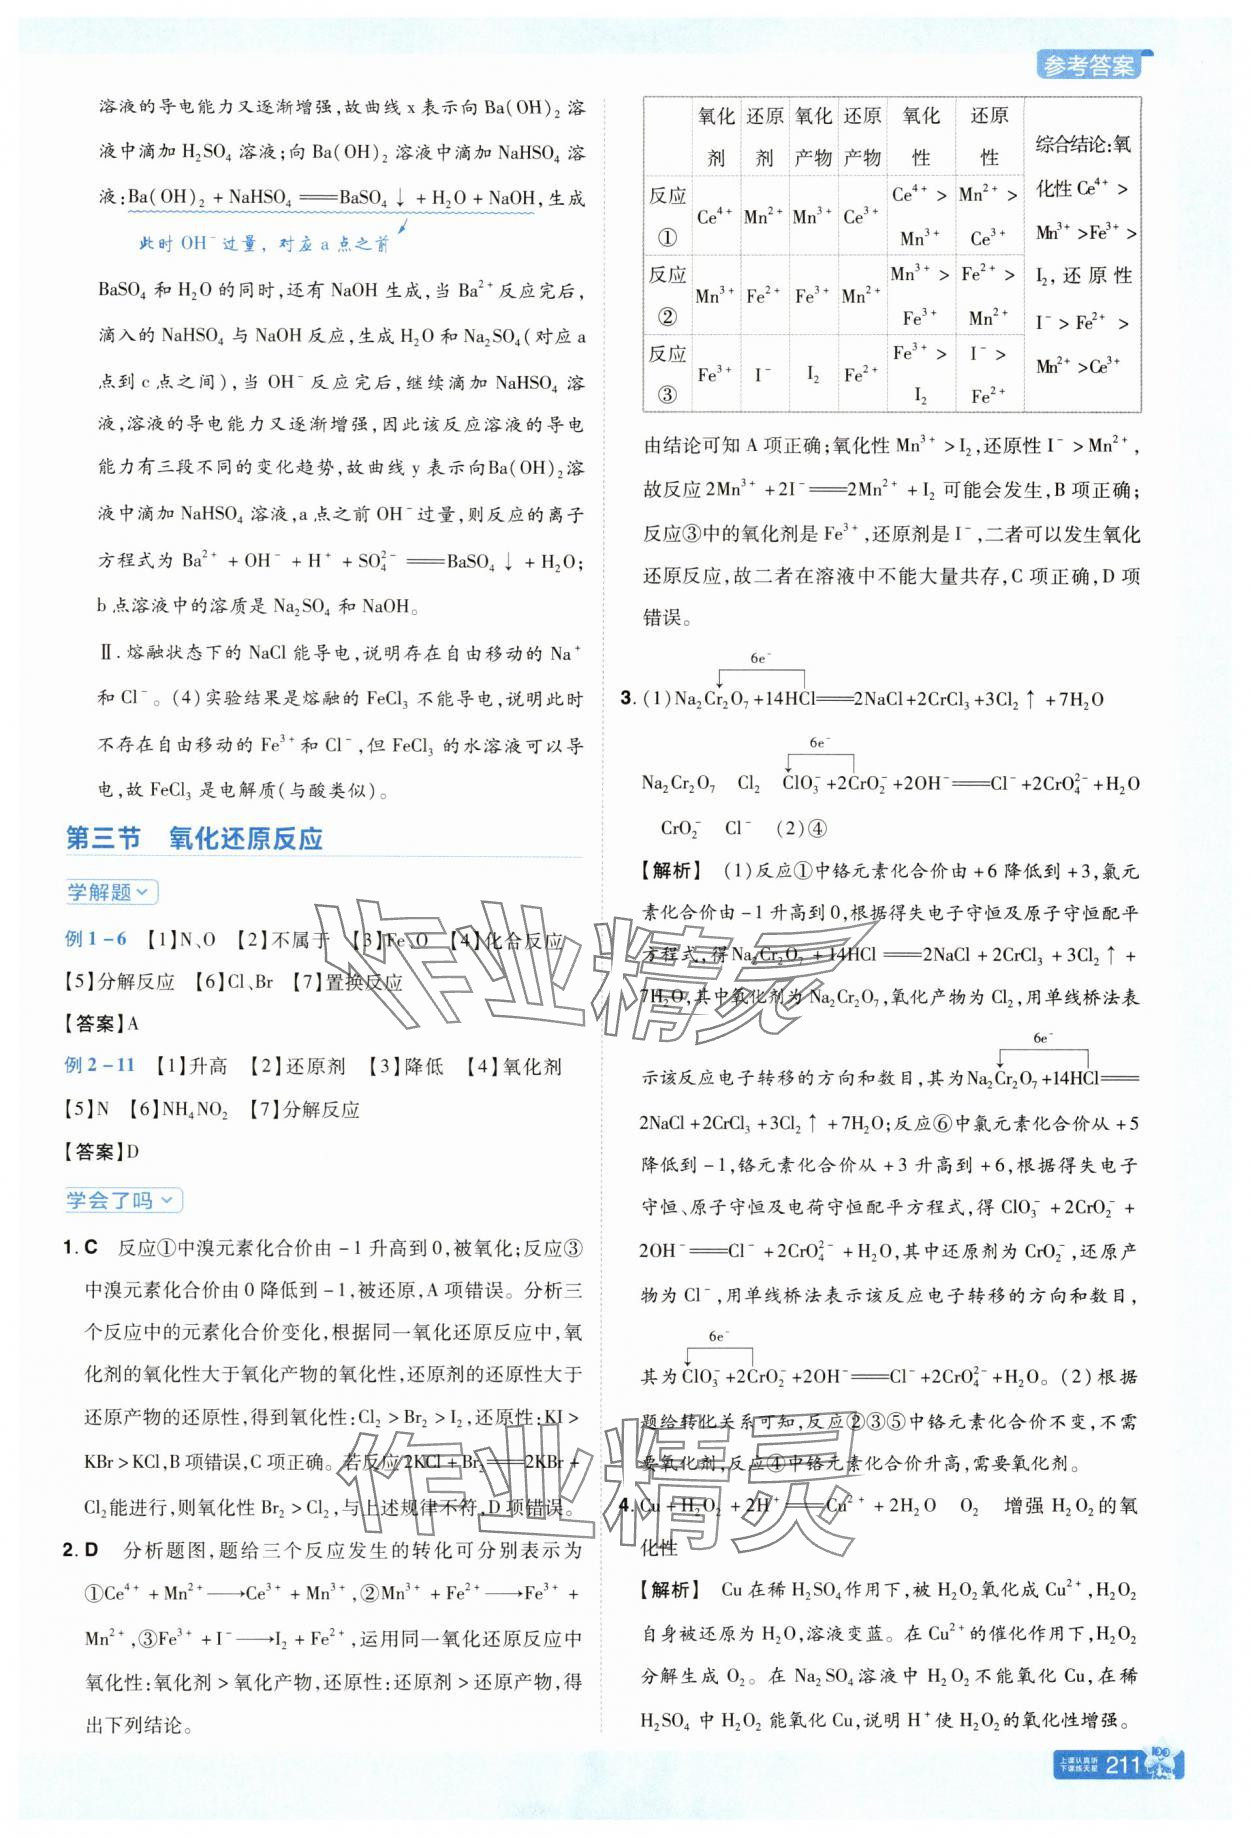 参考答案
溶液的导电能力又逐渐增强,故曲线 x 表示向 Ba(OH)₂ 溶
液中滴加 H₂SO₄ 溶液;向 Ba(OH)₂ 溶液中滴加 NaHSO₄ 溶
液:Ba(OH)₂ + NaHSO₄ ══ BaSO₄↓ + H₂O + NaOH,生成
此时 OH⁻ 过量, 对应 a 点之前
BaSO₄ 和 H₂O 的同时,还有 NaOH 生成,当 Ba²⁺ 反应完后,
滴入的 NaHSO₄ 与 NaOH 反应,生成 H₂O 和 Na₂SO₄(对应 a
点到 c 点之间),当 OH⁻ 反应完后,继续滴加 NaHSO₄ 溶
液,溶液的导电能力又逐渐增强,因此该反应溶液的导电
能力有三段不同的变化趋势,故曲线 y 表示向Ba(OH)₂ 溶
液中滴加 NaHSO₄ 溶液,a 点之前 OH⁻ 过量,则反应的离子
方程式为 Ba²⁺ + OH⁻ + H⁺ + SO₄²⁻ ══ BaSO₄↓ + H₂O;
b 点溶液中的溶质是 Na₂SO₄ 和 NaOH。
Ⅱ. 熔融状态下的 NaCl 能导电,说明存在自由移动的 Na⁺
和 Cl⁻。(4)实验结果是熔融的 FeCl₃ 不能导电,说明此时
不存在自由移动的 Fe³⁺ 和 Cl⁻,但 FeCl₃ 的水溶液可以导
电,故 FeCl₃ 是电解质(与酸类似)。
第三节 氧化还原反应
学解题
例 1-6 【1】N、O 【2】不属于 【3】Fe、O 【4】化合反应
【5】分解反应 【6】Cl、Br 【7】置换反应
【答案】A
例 2-11 【1】升高 【2】还原剂 【3】降低 【4】氧化剂
【5】N 【6】NH₄NO₂ 【7】分解反应
【答案】D
学会了吗
1. C 反应①中溴元素化合价由 -1 升高到 0,被氧化;反应③
中溴元素化合价由 0 降低到 -1,被还原,A 项错误。分析三
个反应中的元素化合价变化,根据同一氧化还原反应中,氧
化剂的氧化性大于氧化产物的氧化性,还原剂的还原性大于
还原产物的还原性,得到氧化性:Cl₂ > Br₂ > I₂,还原性:KI >
KBr > KCl,B 项错误,C 项正确。若反应 2KCl + Br₂ ══ 2KBr +
Cl₂能进行,则氧化性 Br₂ > Cl₂,与上述规律不符,D 项错误。
2. D 分析题图,题给三个反应发生的转化可分别表示为
①Ce⁴⁺ + Mn²⁺ ⟶ Ce³⁺ + Mn³⁺,②Mn³⁺ + Fe²⁺ ⟶ Fe³⁺ +
Mn²⁺,③Fe³⁺ + I⁻ ⟶ I₂ + Fe²⁺,运用同一氧化还原反应中
氧化性:氧化剂 > 氧化产物,还原性:还原剂 > 还原产物,得
出下列结论。
氧化剂 还原剂 氧化产物 还原产物 氧化性 还原性 综合结论:氧化性 Ce⁴⁺ > Mn³⁺ > Fe³⁺ > I₂,还原性 I⁻ > Fe²⁺ > Mn²⁺ > Ce³⁺
反应① Ce⁴⁺ Mn²⁺ Mn³⁺ Ce³⁺ Ce⁴⁺ > Mn³⁺ Mn²⁺ > Ce³⁺
反应② Mn³⁺ Fe²⁺ Fe³⁺ Mn²⁺ Mn³⁺ > Fe³⁺ Fe²⁺ > Mn²⁺
反应③ Fe³⁺ I⁻ I₂ Fe²⁺ Fe³⁺ > I₂ I⁻ > Fe²⁺
由结论可知 A 项正确;氧化性 Mn³⁺ > I₂,还原性 I⁻ > Mn²⁺,
故反应 2Mn³⁺ + 2I⁻ ══ 2Mn²⁺ + I₂ 可能会发生,B 项正确;
反应③中的氧化剂是 Fe³⁺,还原剂是 I⁻,二者可以发生氧化
还原反应,故二者在溶液中不能大量共存,C 项正确,D 项
错误。
6e⁻
3. (1)Na₂Cr₂O₇+14HCl══2NaCl+2CrCl₃+3Cl₂↑+7H₂O
6e⁻
Na₂Cr₂O₇ Cl₂ ClO₃⁻+2CrO₂⁻+2OH⁻══Cl⁻+2CrO₄²⁻+H₂O
CrO₂⁻ Cl⁻ (2)④
【解析】 (1)反应①中铬元素化合价由 +6 降低到 +3,氯元
素化合价由 -1 升高到 0,根据得失电子守恒及原子守恒配平
方程式,得 Na₂Cr₂O₇ + 14HCl ══ 2NaCl + 2CrCl₃ + 3Cl₂↑ +
7H₂O,其中氧化剂为 Na₂Cr₂O₇,氧化产物为 Cl₂,用单线桥法表
6e⁻
示该反应电子转移的方向和数目,其为 Na₂Cr₂O₇+14HCl══
2NaCl +2CrCl₃ +3Cl₂↑ +7H₂O;反应⑥中氯元素化合价从 +5
降低到 -1,铬元素化合价从 +3 升高到 +6,根据得失电子
守恒、原子守恒及电荷守恒配平方程式,得 ClO₃⁻ + 2CrO₂⁻ +
2OH⁻ ══ Cl⁻ + 2CrO₄²⁻ + H₂O,其中还原剂为 CrO₂⁻,还原产
物为 Cl⁻,用单线桥法表示该反应电子转移的方向和数目,
6e⁻
其为 ClO₃⁻+2CrO₂⁻+2OH⁻══Cl⁻+2CrO₄²⁻+H₂O。(2)根据
题给转化关系可知,反应②③⑤中铬元素化合价不变,不需
要氧化剂,反应④中铬元素化合价升高,需要氧化剂。
4. Cu + H₂O₂ + 2H⁺ ══ Cu²⁺ + 2H₂O O₂ 增强 H₂O₂ 的氧
化性
【解析】 Cu 在稀 H₂SO₄ 作用下,被 H₂O₂ 氧化成 Cu²⁺,H₂O₂
自身被还原为 H₂O,溶液变蓝。在 Cu²⁺ 的催化作用下,H₂O₂
分解生成 O₂。在 Na₂SO₄ 溶液中 H₂O₂ 不能氧化 Cu,在稀
H₂SO₄ 中 H₂O₂ 能氧化 Cu,说明 H⁺ 使 H₂O₂ 的氧化性增强。
作业精灵
作业精灵
上课认真听
下课练天星
211